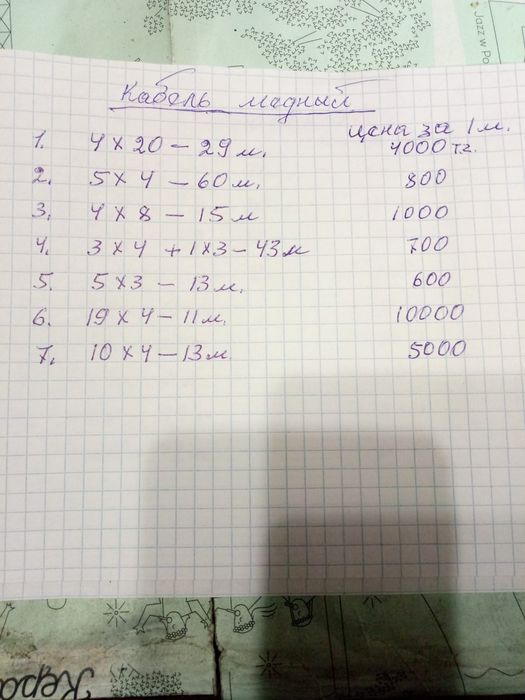 Jazz w Po
Кабель медный
цена за 1 м.
1. 4 х 20 – 29 м. 4000 тг.
2. 5 х 4 – 60 м. 800
3. 4 х 8 – 15 м 1000
4. 3 х 4 + 1 х 3 – 43 м 700
5. 5 х 3 – 13 м. 600
6. 19 х 4 – 11 м. 10000
7. 10 х 4 – 13 м 5000
Кера